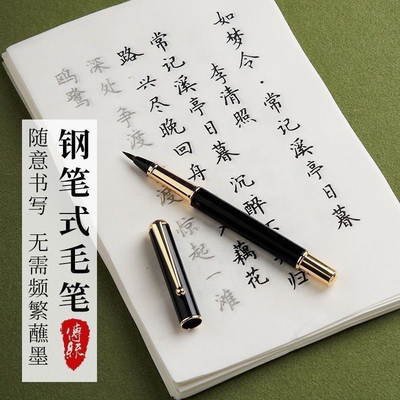 钢笔式毛笔
随意书写 无需频繁蘸墨
傳統
如梦令 常记溪亭日暮
李清照
常记溪亭日暮 沉醉 归
路 兴尽晚回舟 藕花
深处 争渡 惊起一滩
鸥鹭